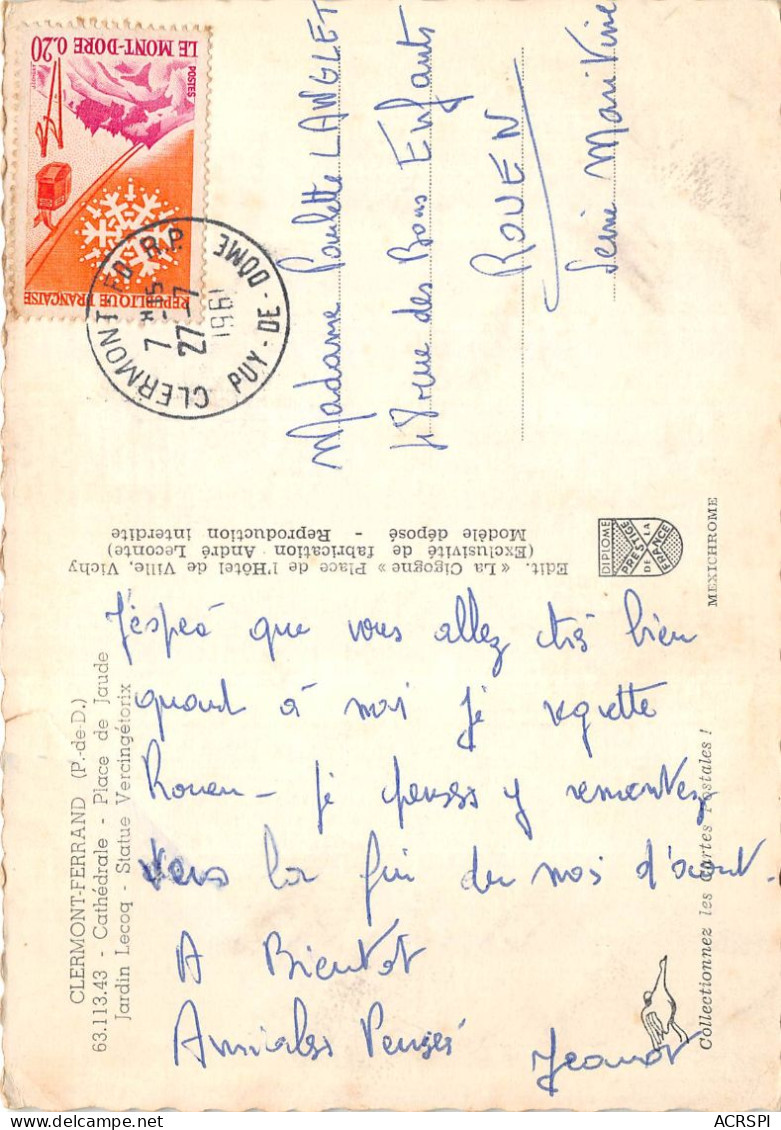 LE MONT-DORE 0.20
POSTES
REPUBLIQUE FRANÇAISE
CLERMONT FD R.P.
7 H 15
27 - 7
196
PUY - DE - DÔME
Madame Paulette LANGLET
48 rue des Bons Enfants
ROUEN
Seine Maritime
Edit. « La Cigogne » Place de l'Hôtel de Ville, Vichy
(Exclusivité de fabrication André Leconte)
Modèle déposé - Reproduction interdite
DIPLOME
PRESTIGE
DE LA
FRANCE
MEXICHROME
CLERMONT-FERRAND (P.-de-D.)
63.113.43 - Cathédrale - Place de Jaude
Jardin Lecoq - Statue Vercingétorix
J'espeé que vous allez très bien
quand à moi je regrette
Rouen - je penses y remontez
vers la fin du mois d'aout.
A Bientot
Amicales Pensés
Jeanot
Collectionnez les Cartes Postales !
ACRSPI